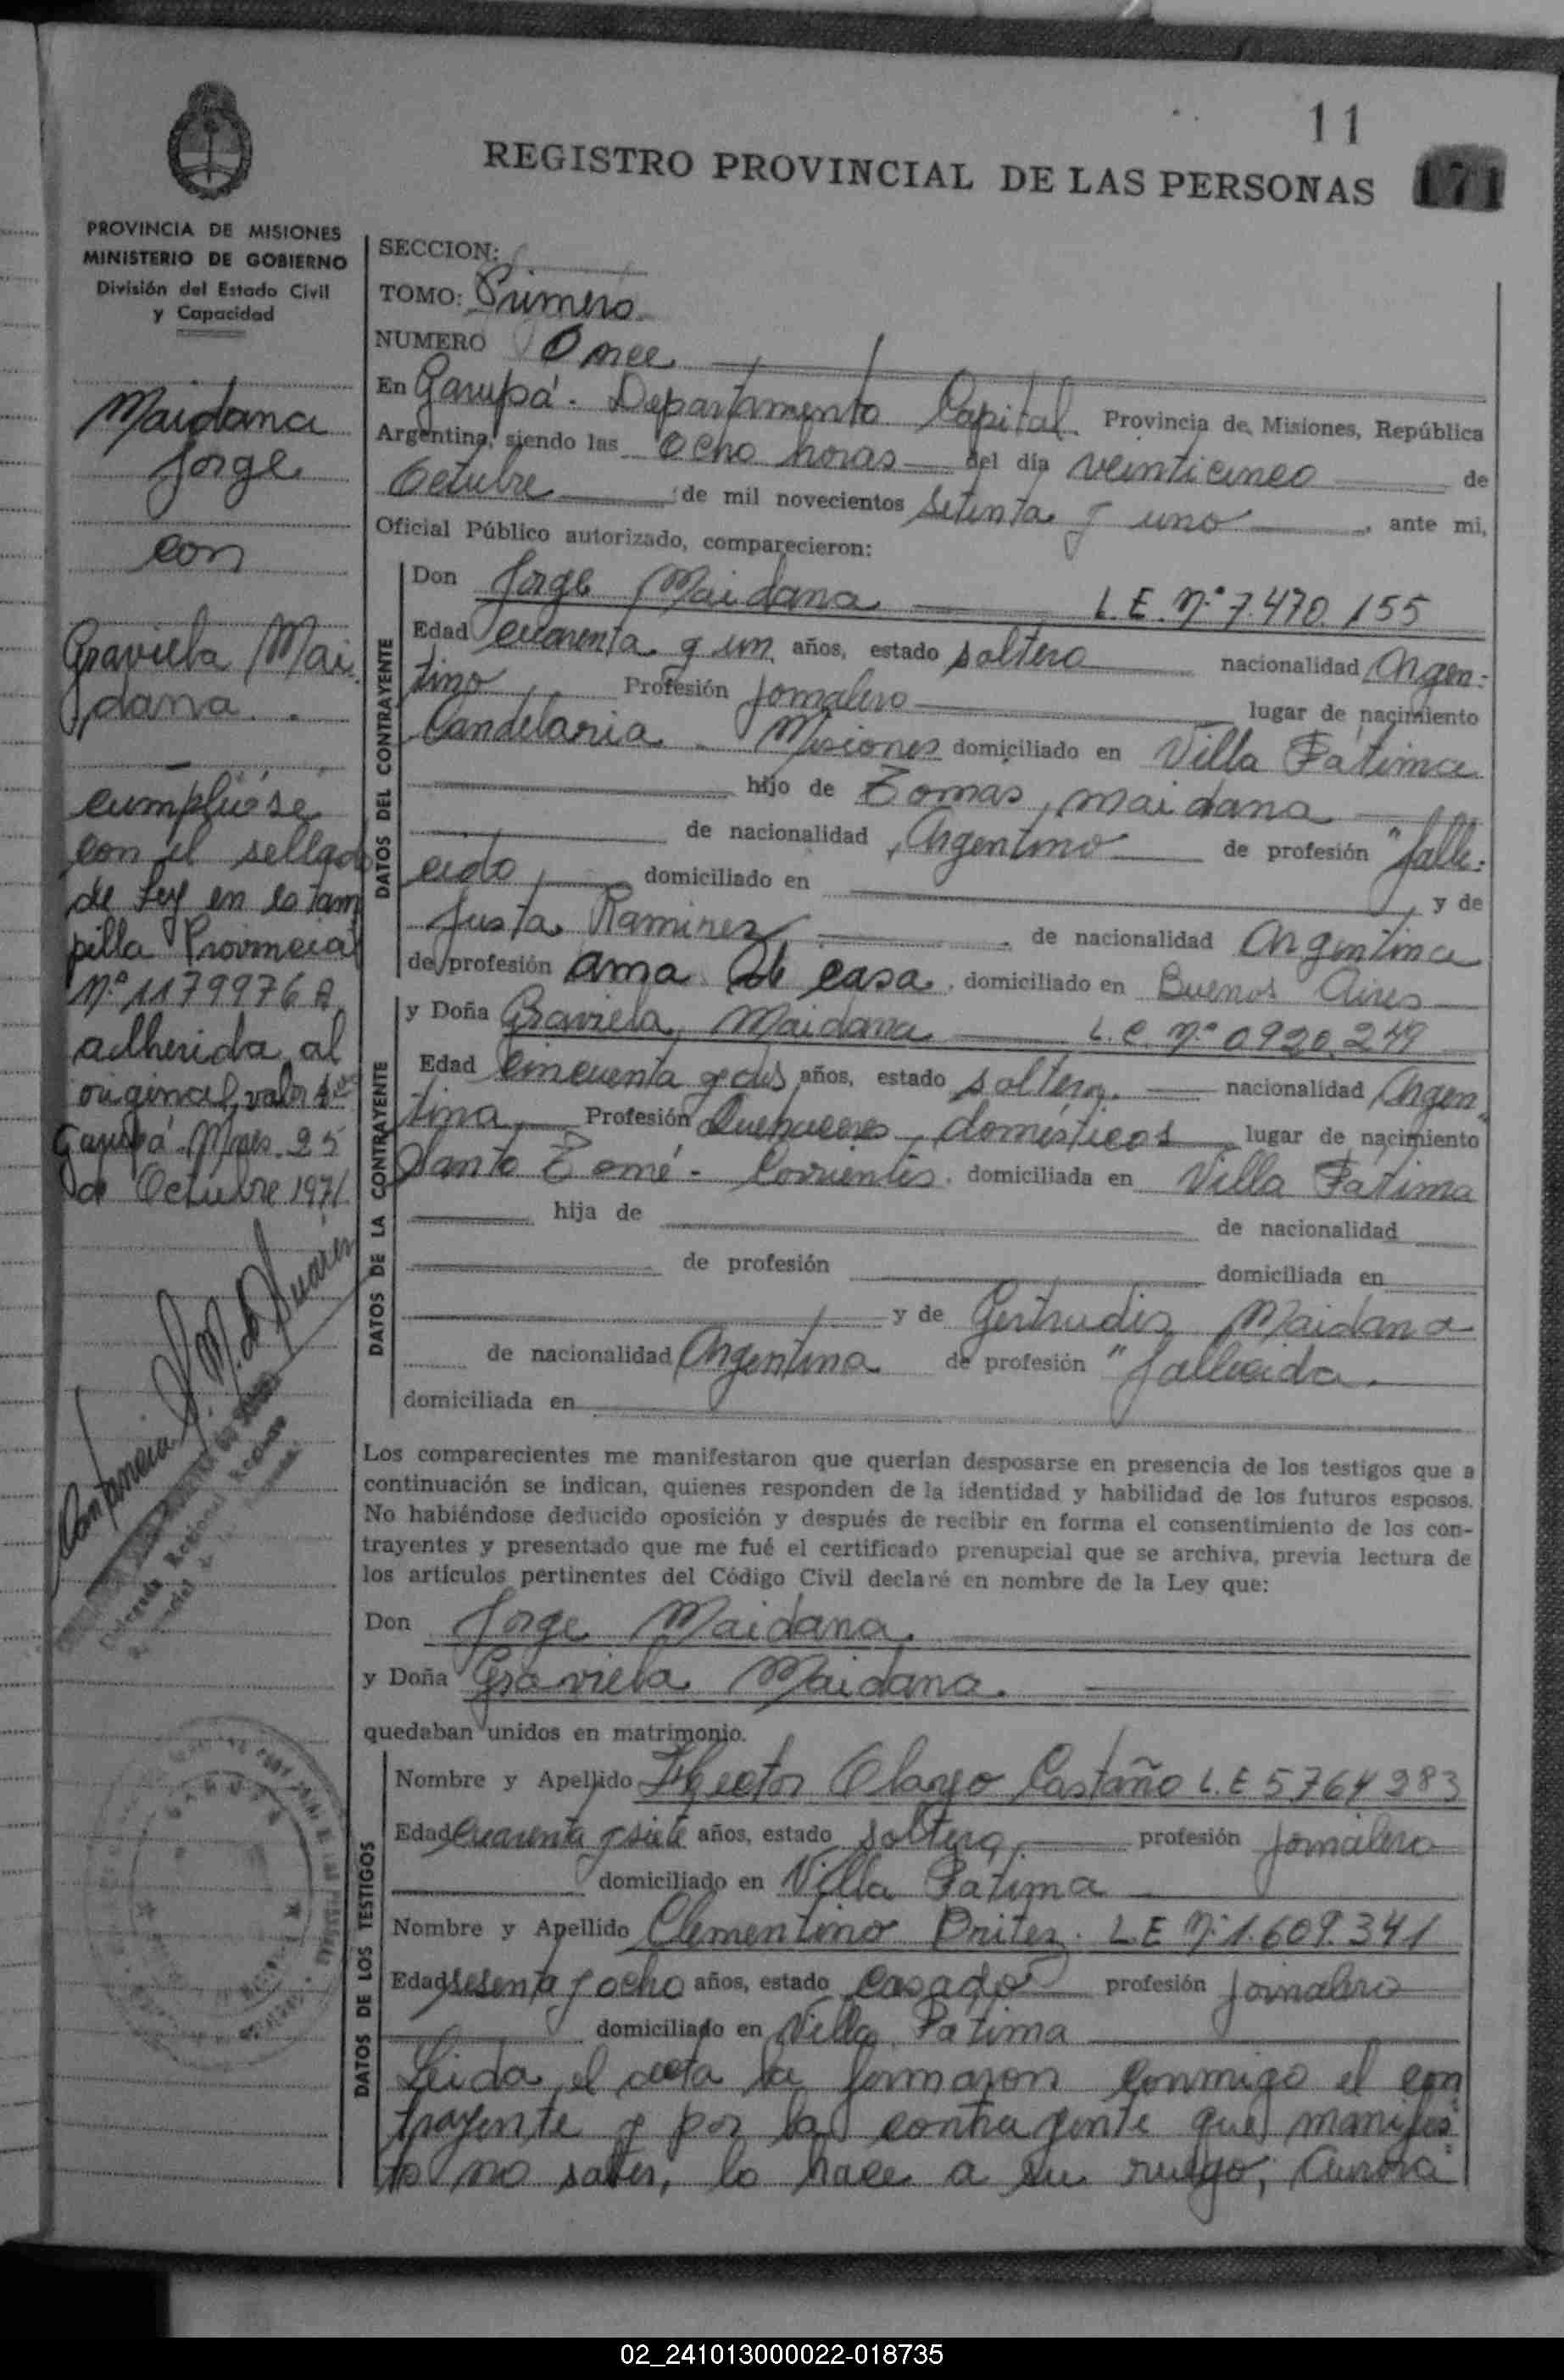 11
REGISTRO PROVINCIAL DE LAS PERSONAS
171
PROVINCIA DE MISIONES
MINISTERIO DE GOBIERNO
División del Estado Civil
y Capacidad
Maidana
Jorge
con
Graviela Mai
dana
cumplióse
con el sellado
de Ley en estam
pilla Provincial
Nº 1179976 A
adherida al
original, valor
Garupá Mnes. 25
de Octubre 1971
SECCION:
TOMO: Primero
NUMERO Once
En Garupá - Departamento Capital Provincia de Misiones, República
Argentina, siendo las Ocho horas del día veinticinco de
Octubre de mil novecientos setenta y uno, ante mi,
Oficial Público autorizado, comparecieron:
DATOS DEL CONTRAYENTE
Don Jorge Maidana L.E. Nº 7.470.155
Edad cuarenta y un años, estado soltero nacionalidad Argen-
tino, Profesión jornalero lugar de nacimiento
Candelaria - Misiones domiciliado en Villa Fátima
hijo de Tomas, maidana
de nacionalidad Argentino de profesión "falle-
cido, domiciliado en y de
Justa Ramirez, de nacionalidad Argentina
de profesión ama de casa, domiciliado en Buenos Aires
DATOS DE LA CONTRAYENTE
y Doña Graviela, Maidana L.C. Nº 0920.249
Edad cincuenta y dos años, estado soltera nacionalidad Argen
tina, Profesión Quehaceres domésticos lugar de nacimiento
Santo Tomé - Corrientes, domiciliada en Villa Fátima
hija de de nacionalidad
de profesión domiciliada en
y de Gertrudis Maidana
de nacionalidad Argentina de profesión "fallecida.
domiciliada en
Los comparecientes me manifestaron que querían desposarse en presencia de los testigos que a
continuación se indican, quienes responden de la identidad y habilidad de los futuros esposos.
No habiéndose deducido oposición y después de recibir en forma el consentimiento de los con-
trayentes y presentado que me fué el certificado prenupcial que se archiva, previa lectura de
los artículos pertinentes del Código Civil declaré en nombre de la Ley que:
Don Jorge Maidana
y Doña Graviela Maidana.
quedaban unidos en matrimonio.
DATOS DE LOS TESTIGOS
Nombre y Apellido Hector Castaño L.E 5764983
Edad cuarenta y siete años, estado soltero, profesión jornalero
domiciliado en Villa Fatima
Nombre y Apellido Clementino Britez. L.E Nº 1.609.341
Edad sesenta y ocho años, estado casado profesión jornalero
domiciliado en Villa Fatima
Leida el acta la firmaron conmigo el con
trayente y por la contrayente que manifes-
to no saber, lo hace a su ruego, Aurora
02_241013000022-018735